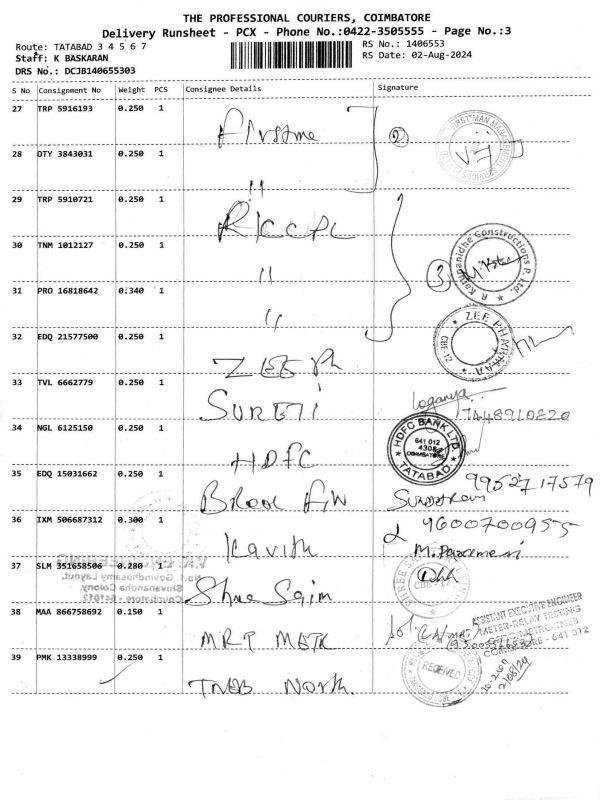 THE PROFESSIONAL COURIERS, COIMBATORE
Delivery Runsheet - PCX - Phone No.:0422-3505555 - Page No.:3
Route: TATABAD 3 4 5 6 7
RS No.: 1406553
Staff: K BASKARAN
RS Date: 02-Aug-2024
DRS No.: DCJB140655303
S No Consignment No Weight PCS Consignee Details Signature
27 TRP 5916193 0.250 1 Firstme
FIRST MAN MANAGEMENT SERVICES
2
28 OTY 3843031 0.250 1 "
29 TRP 5910721 0.250 1 RKCCPL
30 TNM 1012127 0.250 1 "
3 R Karunanidhe Constructions P. Ltd.
31 PRO 16818642 0.340 1 "
32 EDQ 21577500 0.250 1 ZEE Ph
ZEE PHARMAA CBE-12
33 TVL 6662779 0.250 1 SURETI
Loganya 7448910820
34 NGL 6125150 0.250 1 HDFC
HDFC BANK LTD. 641 012 COIMBATORE TATABAD
35 EDQ 15031662 0.250 1 Brook
9952717579
36 IXM 506687312 0.300 1 Kavith
9600700955
37 SLM 351658506 0.280 1 Shree Saim
V.K ENGINEERING
No.1 Govindhasamy Layout,
Shivanandha Colony,
Coimbatore - 641012
38 MAA 866758692 0.150 1 MRT METR
ASSISTANT EXECUTIVE ENGINEER
METER-RELAY TESTING
COIMBATORE - 641 012
39 PMK 13338999 0.250 1 TNEB North.
RECEIVED
2/08/24